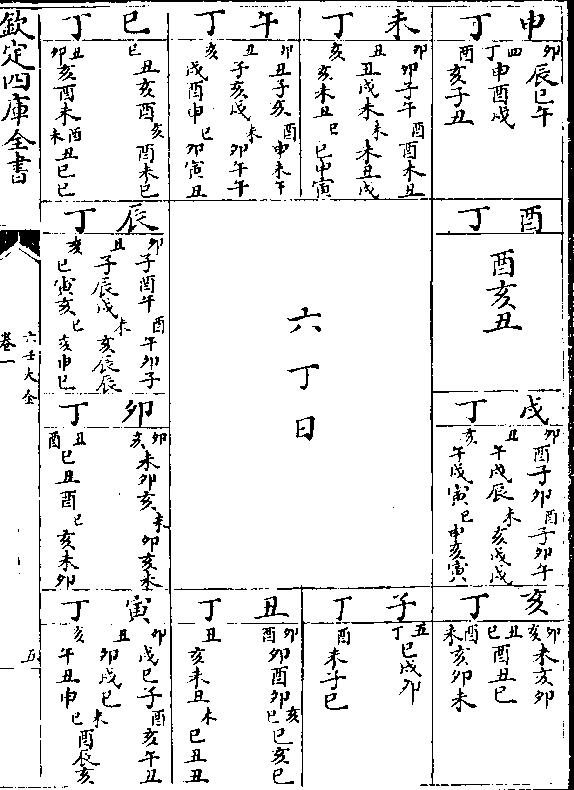 欽定四庫全書
六壬大全
卷一
五
六丁日
申丁
卯辰巳午
四丁申酉戌
酉亥子丑
未丁
卯卯子午酉酉未丑
丑丑戌未未未丑戌
亥亥未丑巳巳申寅
午丁
卯丑子亥酉申未午
丑子亥戌未卯午午
亥戌酉申巳卯寅丑
巳丁
巳丑亥酉亥酉未巳
丑卯亥酉未酉未丑巳巳
酉丁
酉亥丑
辰丁
卯子酉午酉午卯子
丑子辰戌未亥辰辰
亥巳寅亥巳亥申巳
戌丁
卯酉子卯酉子卯午
丑午戌辰未亥戌戌
亥午戌寅巳申亥寅
卯丁
卯亥未卯亥未卯亥未
丑酉巳丑酉巳亥未卯
亥丁
卯亥未亥卯
丑巳酉丑巳
酉未亥卯未
子丁
五丁巳戌卯
酉未子巳
丑丁
卯酉卯酉卯亥巳巳亥巳
丑亥未丑未巳丑丑
寅丁
卯戌巳子酉亥午丑
丑卯戌巳
亥午丑申未巳酉辰亥